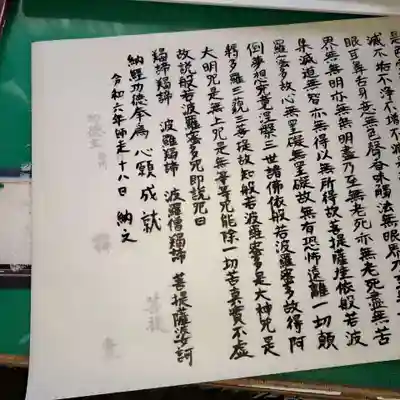 是
滅不垢不淨不増不減
眼耳鼻舌身意無色聲香味觸法無眼界乃至
界無無明亦無無明盡乃至無老死亦無老死盡無苦
集滅道無智亦無得以無所得故菩提薩埵依般若波
羅蜜多故心無罣礙無罣礙故無有恐怖遠離一切顛
倒夢想究竟涅槃三世諸佛依般若波羅蜜多故得阿
耨多羅三藐三菩提故知般若波羅蜜多是大神咒是
大明咒是無上咒是無等等咒能除一切苦真實不虚
故説般若波羅蜜多咒即説咒曰
羯諦羯諦 波羅羯諦 波羅僧羯諦 菩提薩婆訶
納経功徳奉為心願成就
令和六年師走十八日 納之